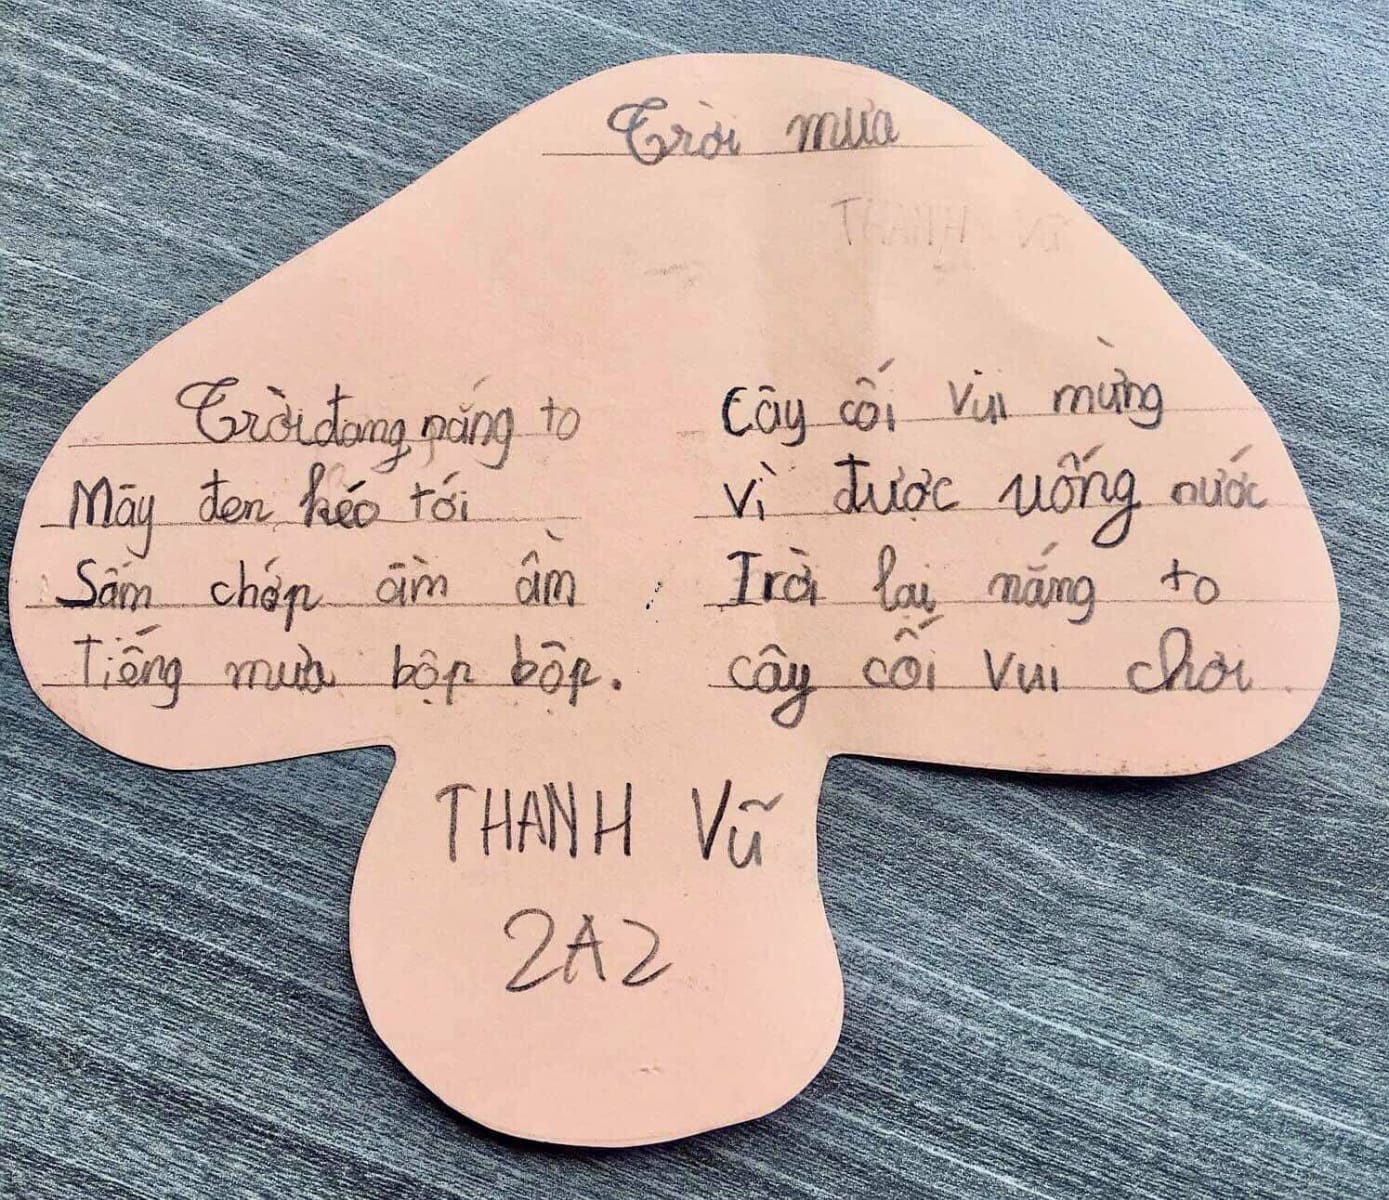 Trời mưa
Trời đang nắng to
Mây đen kéo tới
Sấm chớp ầm ầm
Tiếng mưa bộp bộp.
Cây cối vui mừng
Vì được uống nước
Trời lại nắng to
cây cối vui chơi.
THANH Vũ
2A2